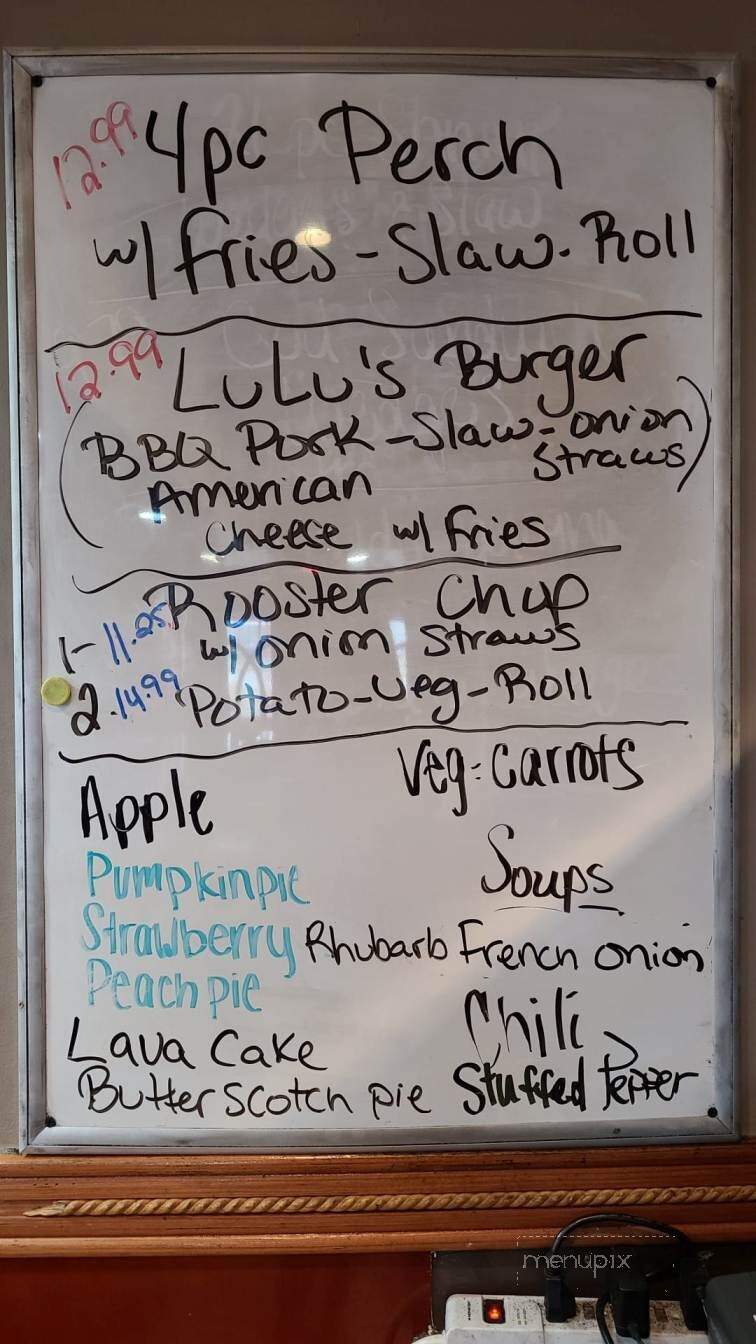 12.99 4pc Perch
w/ fries - Slaw - Roll
12.99 LuLu's Burger
(BBQ Pork - Slaw - onion
straws)
American
cheese w/ fries
Rooster Chop
1- 11.25 w/ onion straws
2. 14.99 Potato - Veg - Roll
Veg: carrots
Apple
Pumpkin pie
Strawberry Rhubarb
Peach pie
Lava Cake
Butterscotch pie
Soups
French onion
Chili
Stuffed Pepper
menupix